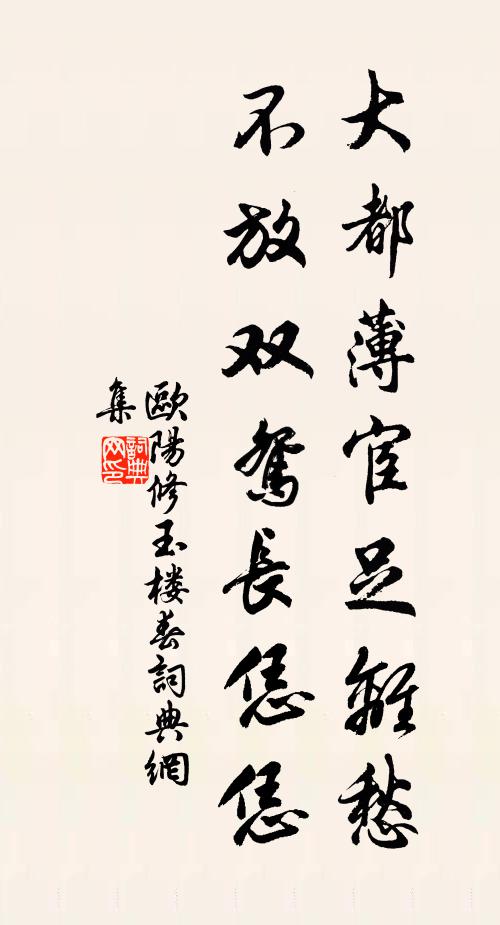 大都薄宦足離愁
不放双鴛長恁恁
歐陽修玉楼春詞典網
集
詞典网印